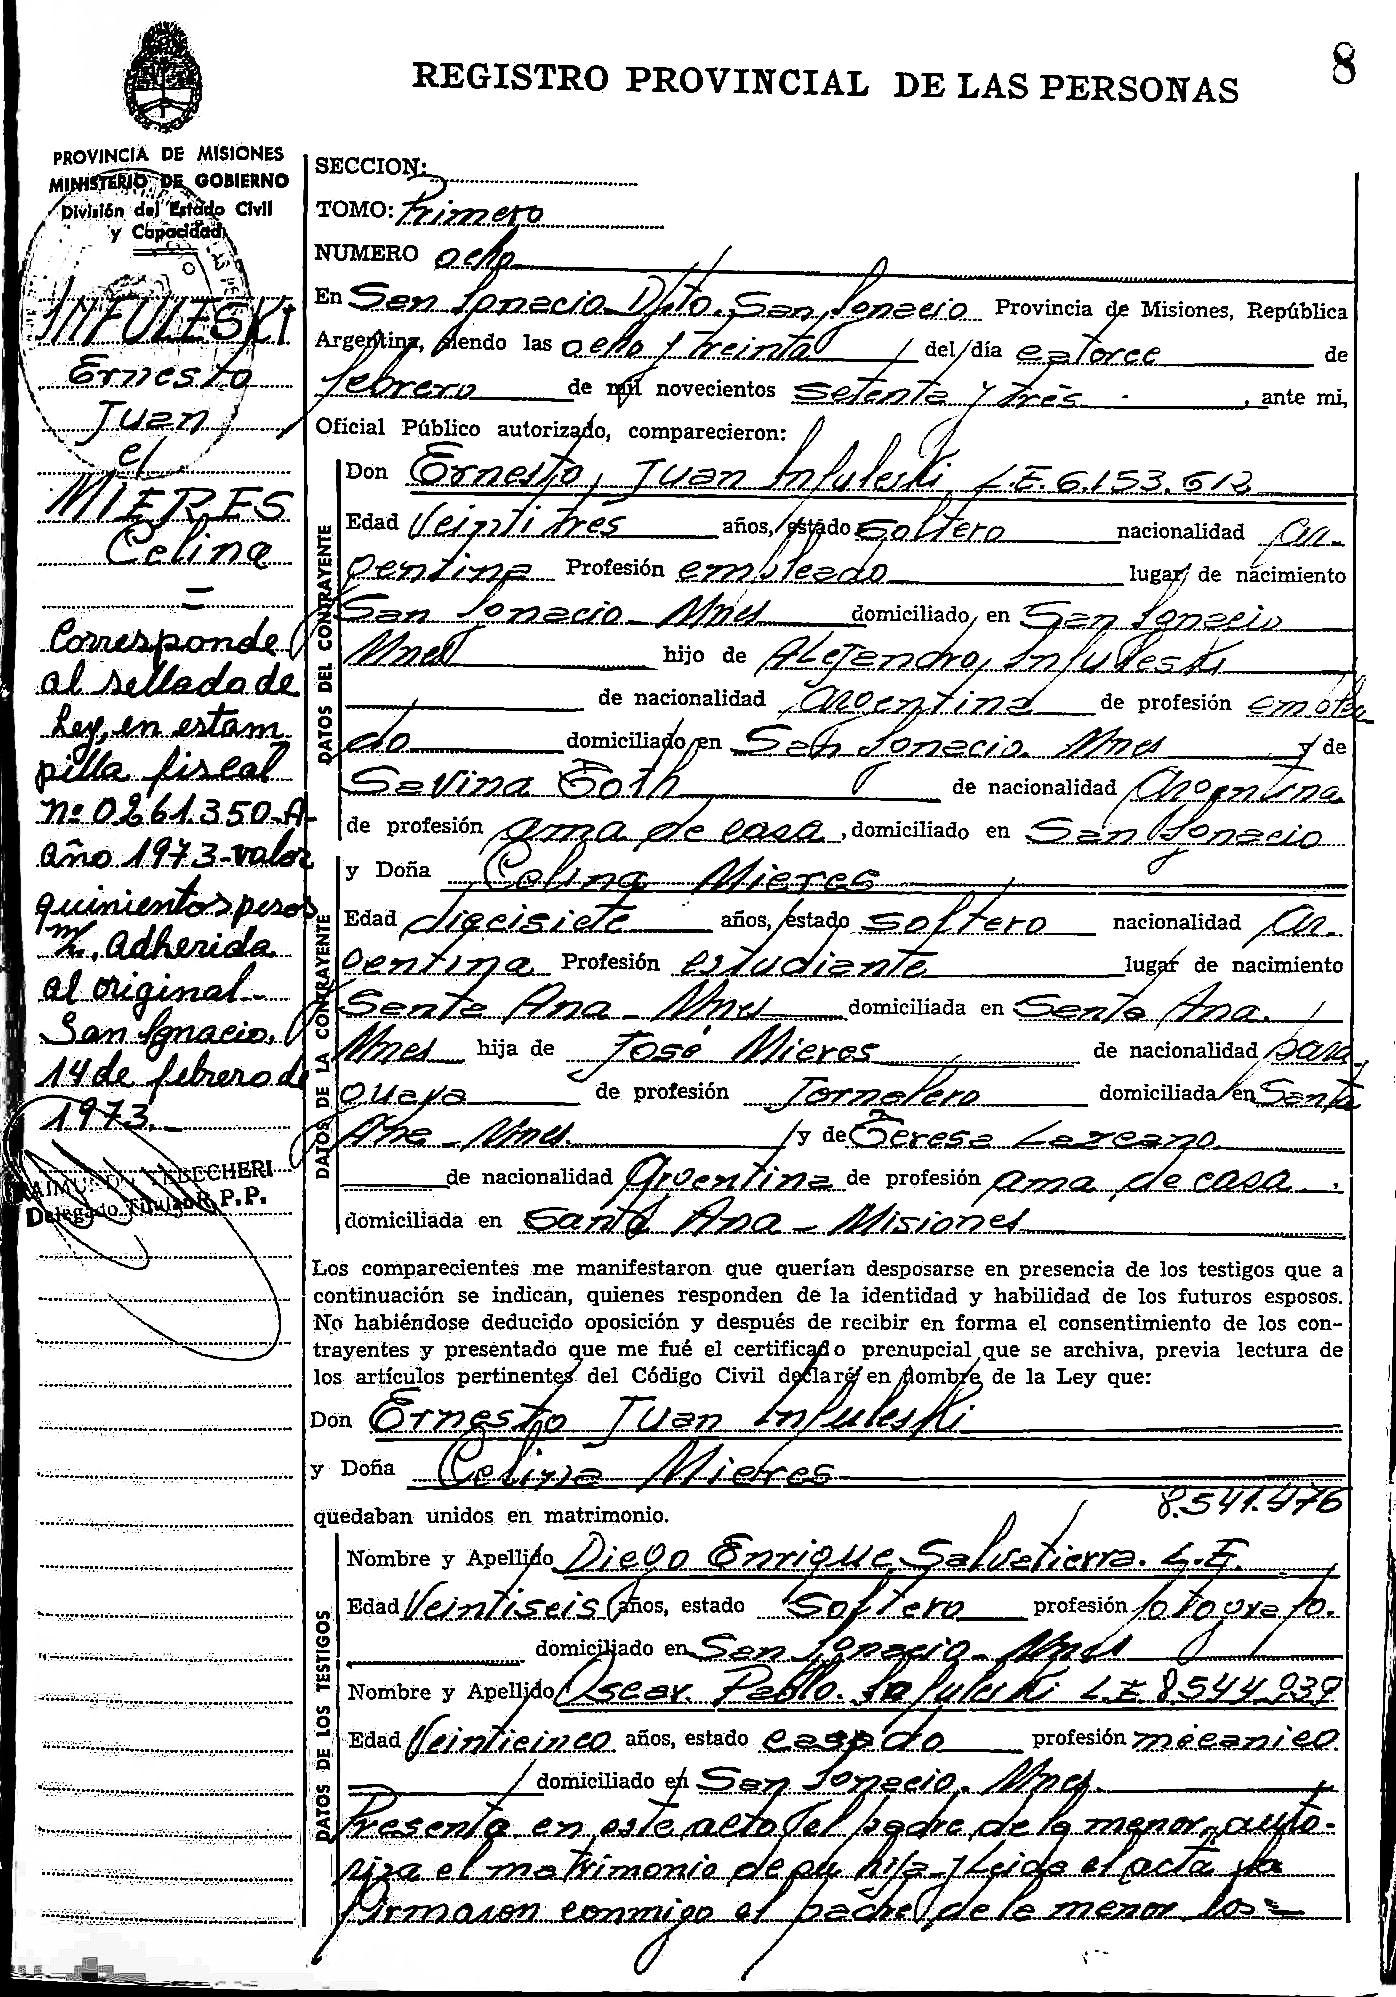 REGISTRO PROVINCIAL DE LAS PERSONAS
8
PROVINCIA DE MISIONES
MINISTERIO DE GOBIERNO
División del Estado Civil
y Capacidad
INFULESKI
Ernesto
Juan
c/
MIERES
Celina
=
Corresponde
al sellado de
Ley, en estam
pilla fiscal
nº 0261.350-A-
año 1973-valor
quinientos pesos
m/n, adherida
al original.-
San Ignacio,
14 de febrero de
1973.-
RAIMUNDO YABECHERI
Delegado Titular R.P.P.
SECCION:
TOMO: Primero
NUMERO ocho
En San Ignacio Dpto. San Ignacio Provincia de Misiones, República
Argentina, siendo las ocho y treinta del día catorce de
febrero de mil novecientos setenta y tres , ante mi,
Oficial Público autorizado, comparecieron:
DATOS DEL CONTRAYENTE
Don Ernesto Juan Infuleski L.E. 6.153.612
Edad Veintitrés años, estado soltero nacionalidad Ar-
gentina Profesión empleado lugar de nacimiento
San Ignacio - Mnes domiciliado en San Ignacio
Mnes hijo de Alejandro Infuleski
de nacionalidad Argentina de profesión emplea
do domiciliado en San Ignacio. Mnes y de
Savina Goth de nacionalidad Argentina
de profesión ama de casa , domiciliado en San Ignacio
DATOS DE LA CONTRAYENTE
y Doña Celina Mieres
Edad diecisiete años, estado soltero nacionalidad Ar-
gentina Profesión estudiante lugar de nacimiento
Santa Ana - Mnes domiciliada en Santa Ana.
Mnes hija de José Mieres de nacionalidad para
guaya de profesión Jornalero domiciliada en Santa
Ana - Mnes. y de Teresa Lezcano
de nacionalidad Argentina de profesión ama de casa.
domiciliada en Santa Ana - Misiones
Los comparecientes me manifestaron que querían desposarse en presencia de los testigos que a
continuación se indican, quienes responden de la identidad y habilidad de los futuros esposos.
No habiéndose deducido oposición y después de recibir en forma el consentimiento de los con-
trayentes y presentado que me fué el certificado prenupcial que se archiva, previa lectura de
los artículos pertinentes del Código Civil declaré en nombre de la Ley que:
Don Ernesto Juan Infuleski
y Doña Celina Mieres
quedaban unidos en matrimonio. 8.541.476
DATOS DE LOS TESTIGOS
Nombre y Apellido Diego Enrique Salvatierra. L.E.
Edad Veintiseis años, estado Soltero profesión fotografo.
domiciliado en San Ignacio - Mnes
Nombre y Apellido Oscar. Pablo. Infuleski L.E. 8.544.939
Edad Veinticinco años, estado casado profesión mecanico
domiciliado en San Ignacio. Mnes.
Presenta en este acto el padre de la menor, auto-
riza el matrimonio de su hija y Leida el acta, la
firmaron conmigo el padre de la menor los=